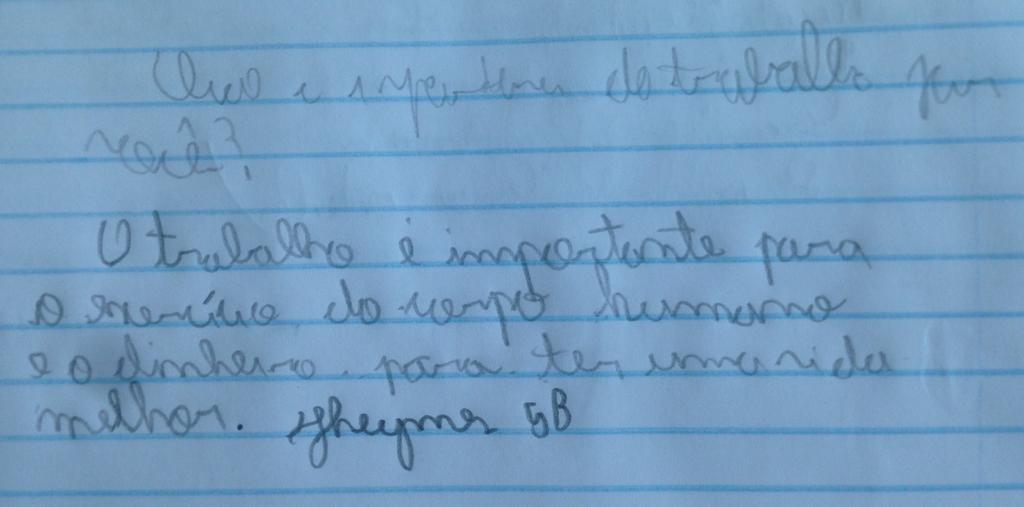 do trabalho
você?
O trabalho é importante para
o exercício do corpo humano
e o dinheiro para ter uma vida
melhor. 5B